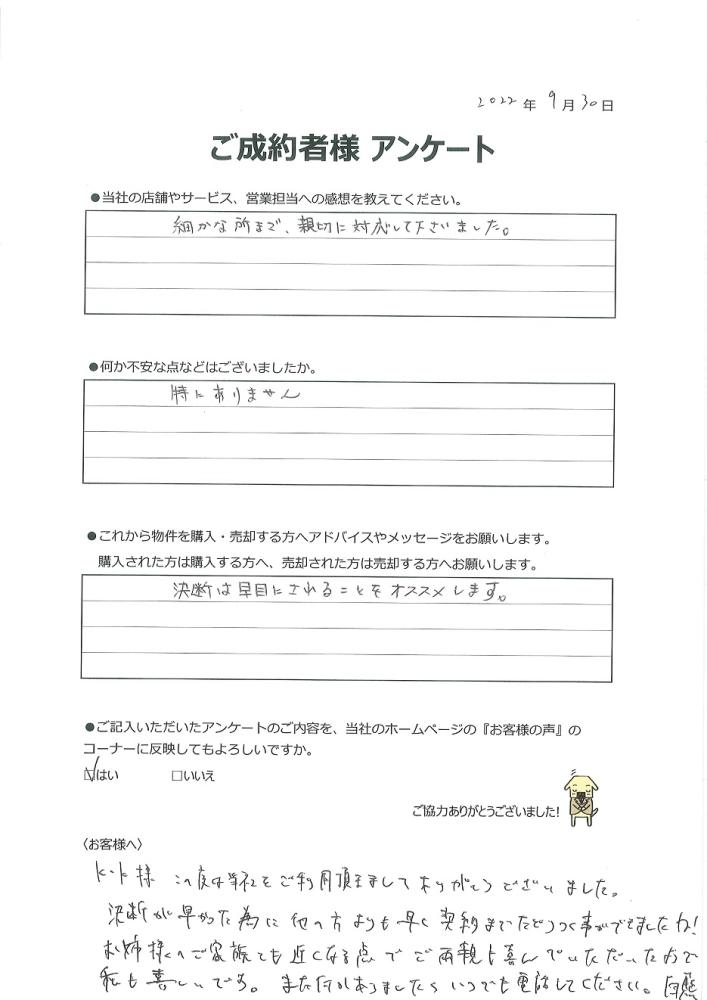 2022年 9月30日
ご成約者様 アンケート
●当社の店舗やサービス、営業担当への感想を教えてください。
細かな所まで、親切に対応して下さいました。
●何か不安な点などはございましたか。
特にありません
●これから物件を購入・売却する方へアドバイスやメッセージをお願いします。
購入された方は購入する方へ、売却された方は売却する方へお願いします。
決断は早目にされることをオススメします。
●ご記入いただいたアンケートのご内容を、当社のホームページの『お客様の声』の
コーナーに反映してもよろしいですか。
☑はい □いいえ
ご協力ありがとうございました!
〈お客様へ〉
K・K様 この度は弊社をご利用頂きましてありがとうございました。
決断が早かった為に他の方よりも早く契約までたどりつく事ができましたね!
お姉様のご家族とも近くなる点でご両親も喜んでいただいたので
私も喜しいです。また何かありましたらいつでも電話してください。